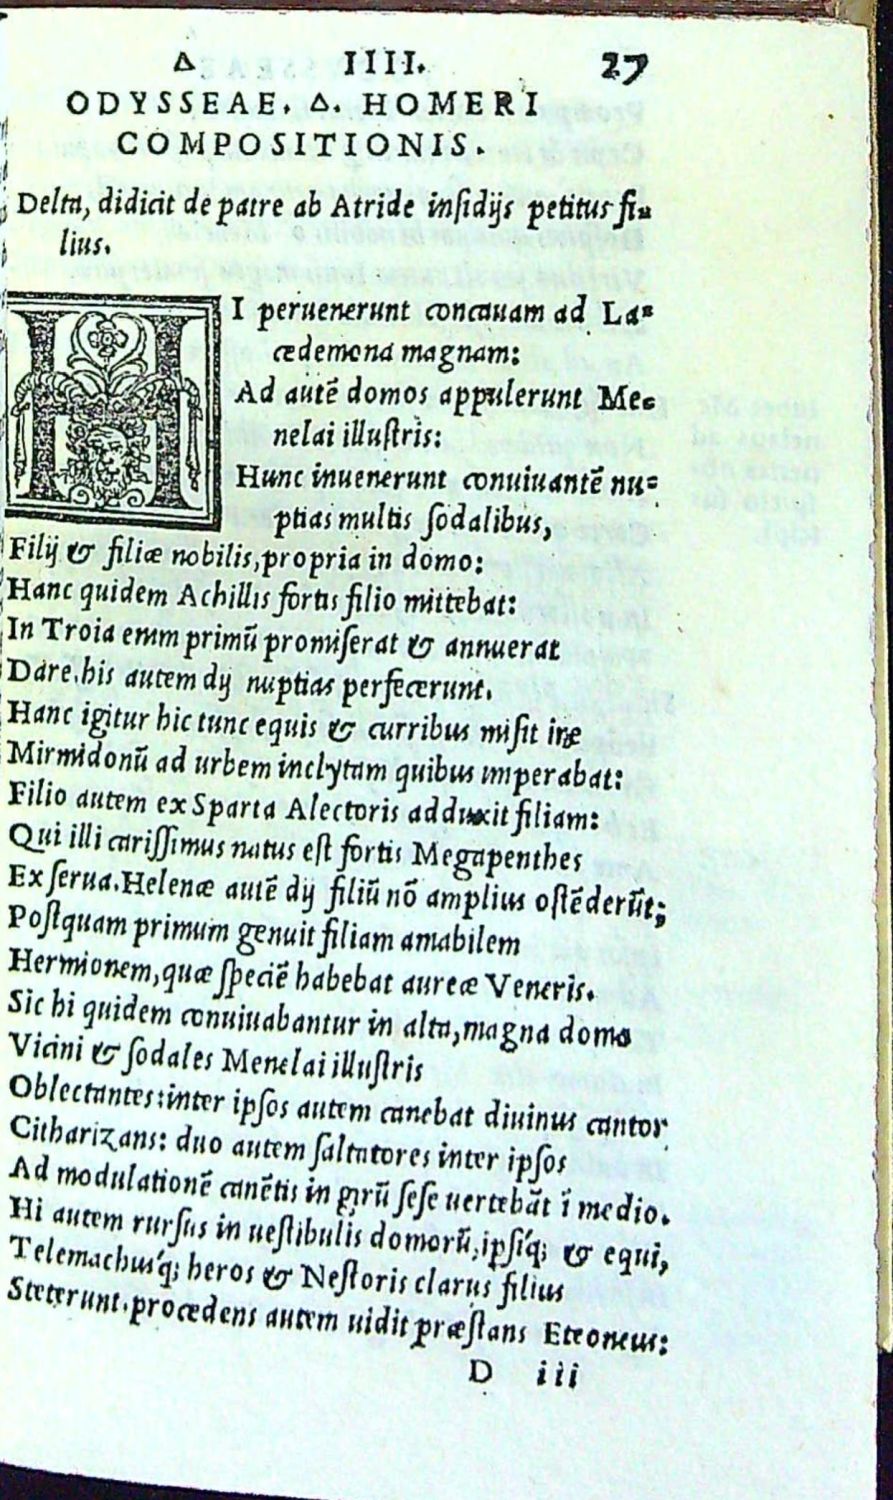 Δ IIII. 27
ODYSSEAE. Δ. HOMERI
COMPOSITIONIS.
Delta, didicit de patre ab Atride insidijs petitus fi-
lius.
HI peruenerunt concauam ad La-
cædemona magnam:
Ad autē domos appulerunt Me-
nelai illustris:
Hunc inuenerunt conuiuantē nu-
ptias multis sodalibus,
Filij & filiæ nobilis, propria in domo:
Hanc quidem Achillis fortis filio mittebat:
In Troia enim primū promiserat & annuerat
Dare. his autem dij nuptias perfecerunt.
Hanc igitur hic tunc equis & curribus misit ire
Mirmidonū ad urbem inclytam quibus imperabat:
Filio autem ex Sparta Alectoris adduxit filiam:
Qui illi carissimus natus est fortis Megapenthes
Ex serua. Helenæ autē dij filiū nō amplius ostēderūt;
Postquam primum genuit filiam amabilem
Hermionem, quæ speciē habebat aureæ Veneris.
Sic hi quidem conuiuabantur in alta, magna domo
Vicini & sodales Menelai illustris
Oblectantes: inter ipsos autem canebat diuinus cantor
Citharizans: duo autem saltatores inter ipsos
Ad modulationē canētis in gyrū sese uertebāt ī medio.
Hi autem rursus in uestibulis domorū, ipsíq; & equi,
Telemachusq́; heros & Nestoris clarus filius
Steterunt. procedens autem uidit præstans Eteoneus:
D iii